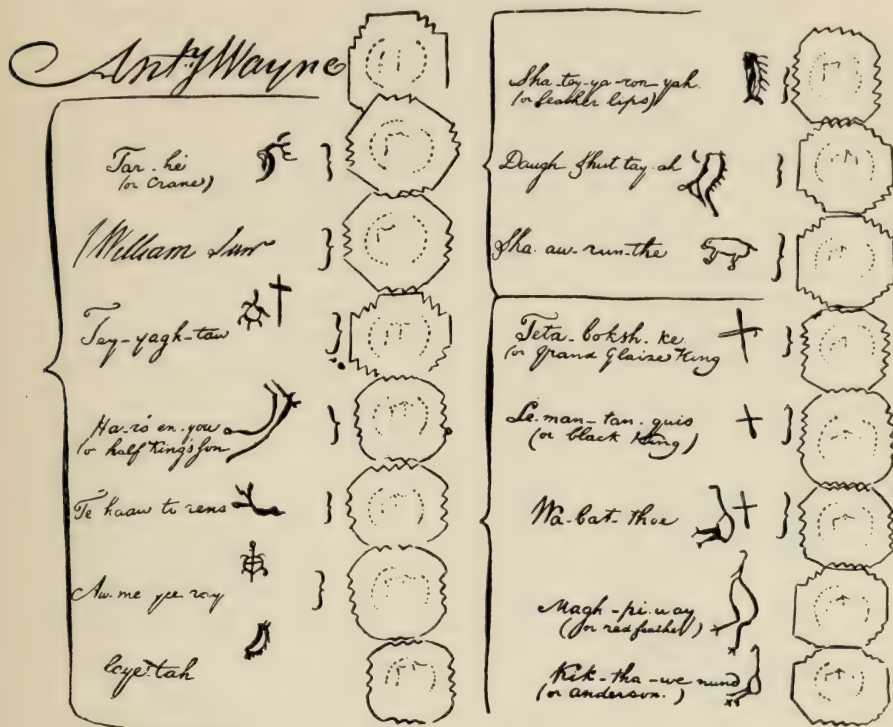 Ant.y Wayne
Tar-hé
(or Crane)
William Sur
Tey-yagh-taw
Ha-ró en-you
or half King's Son
Te haaw to rens
Aw-me yee ray
Caye-tah
Sha-tey-ya-ron-yah
(or feather lips)
Daugh shut-tay-ah
Sha-aw-run-the
Teta-boksh-ke
(or Grand Glaize King
Le-man-tan-quis
(or black King)
Wa-bat-thoe
Magh-pi-way
(or red feather)
Kik-tha-we nund
(or anderson.)